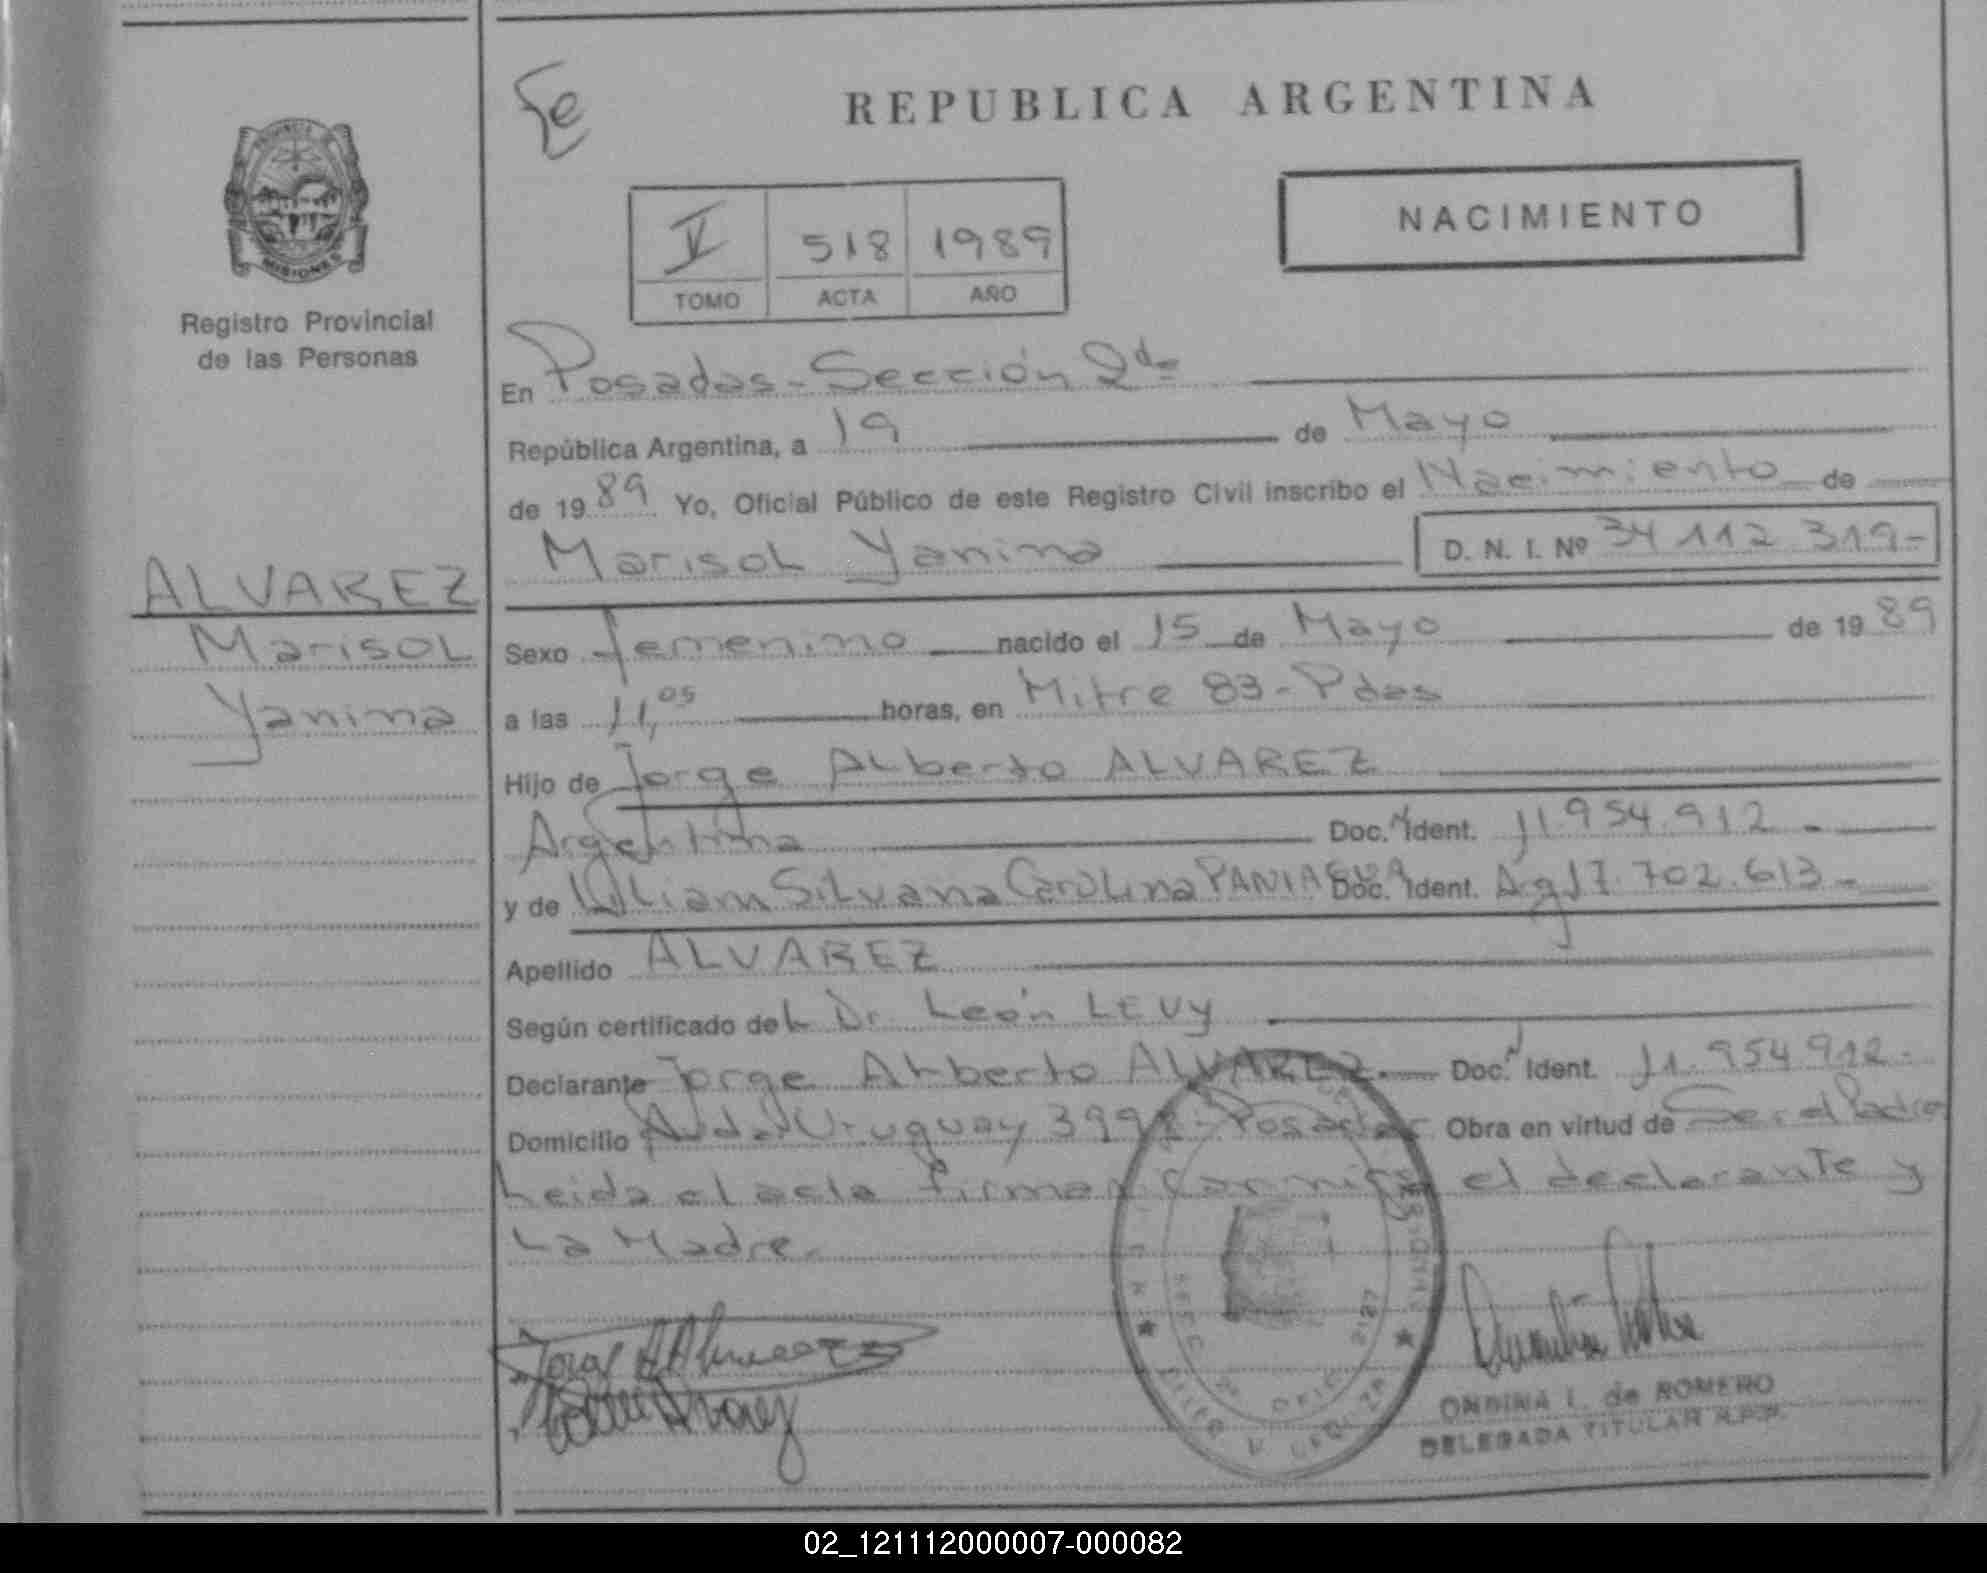 Fe
REPUBLICA ARGENTINA
PROVINCIA DE
MISIONES
Registro Provincial
de las Personas
V 518 1989
TOMO ACTA AÑO
NACIMIENTO
En Posadas - Sección 2da
República Argentina, a 19 de Mayo
de 1989 Yo, Oficial Público de este Registro Civil inscribo el Nacimiento de
Marisol Yanina D. N. I. Nº 34 112 319-
ALVAREZ
Marisol
Yanina
Sexo femenino nacido el 15 de Mayo de 1989
a las 11,05 horas, en Mitre 83 - Pdas
Hijo de Jorge Alberto ALVAREZ
Argentina Doc. Ident. 11.954.912 -
y de Lilliam Silvana Carolina PANIAGUA Doc. Ident. Arg 17.702.613 -
Apellido ALVAREZ
Según certificado del Dr. León LEVY
Declarante Jorge Alberto ALVAREZ.- Doc. Ident. 11.954.912.
Domicilio Avda. Uruguay 3992 - Posadas Obra en virtud de Ser el Padre
Leida el acta firman conmigo el declarante y
La Madre.
ONDINA I. de ROMERO
DELEGADA TITULAR R.P.P.
02_121112000007-000082